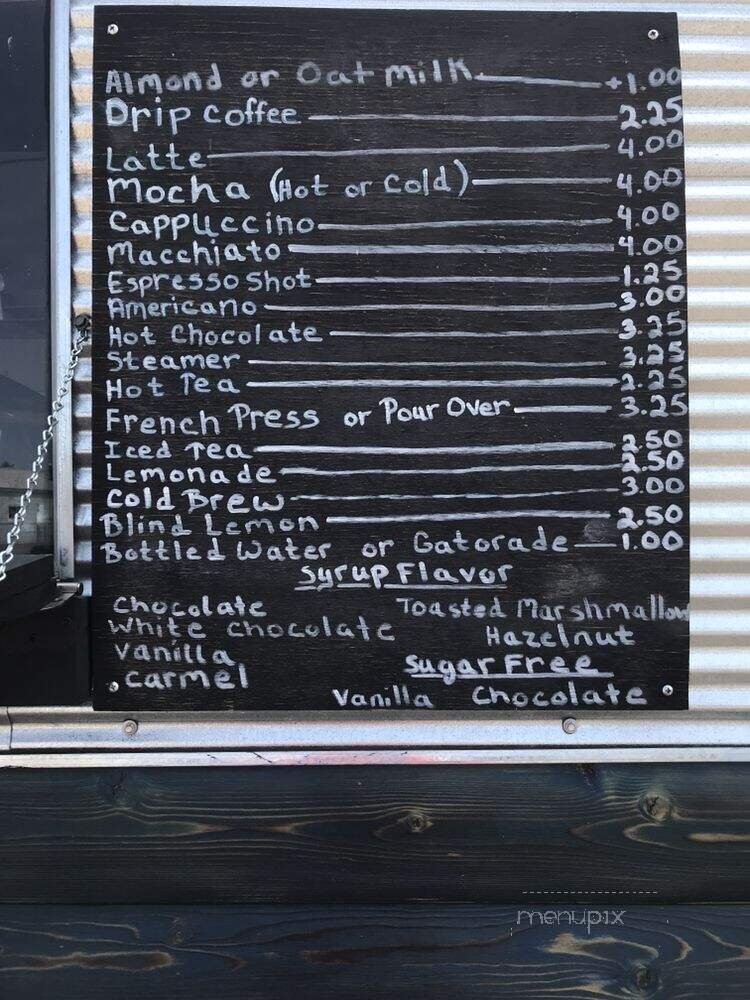 Almond or Oat milK +1.00
Drip Coffee 2.25
Latte 4.00
Mocha (Hot or Cold) 4.00
Cappuccino 4.00
Macchiato 4.00
Espresso Shot 1.25
Americano 3.00
Hot Chocolate 3.25
Steamer 3.25
Hot Tea 2.25
French Press or Pour Over 3.25
Iced Tea 2.50
Lemonade 2.50
Cold Brew 3.00
Blind Lemon 2.50
Bottled Water or Gatorade 1.00
Syrup Flavor
Chocolate Toasted Marshmallow
White Chocolate Hazelnut
Vanilla Sugar Free
Carmel Vanilla Chocolate
menupix